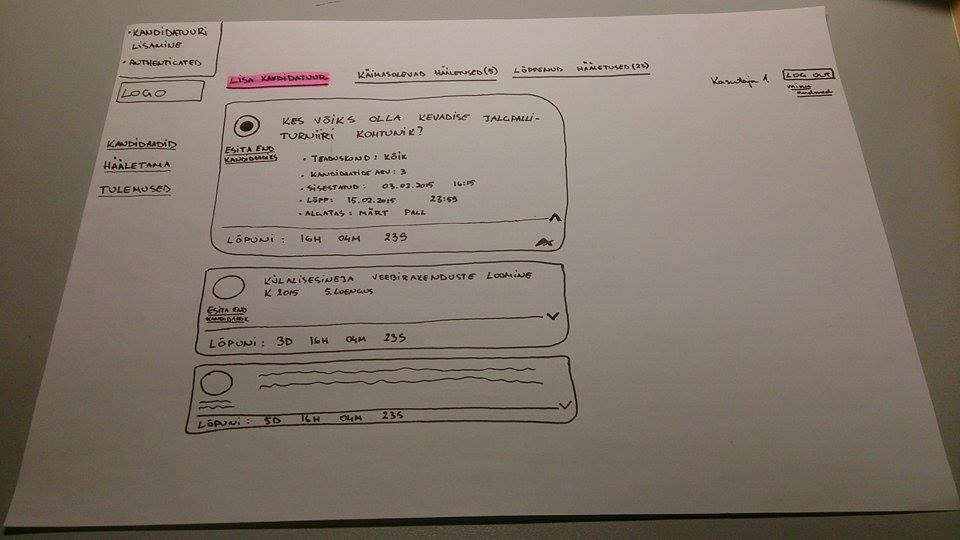 • KANDIDATUURI
LISAMINE
• AUTHENTICATED
LOGO
LISA KANDIDATUUR
KÄIMASOLEVAD HÄÄLETUSED (5)
LÕPPENUD HÄÄLETUSED (23)
Kasutaja 1
LOG OUT
minu
andmed
KANDIDAADID
HÄÄLETAMA
TULEMUSED
KES VÕIKS OLLA KEVADISE JALGPALLI-
TURNIIRI KOHTUNIK?
ESITA END
KANDIDAADIKS
• TEADUSKOND : KÕIK
• KANDIDAATIDE ARV : 3
• SISESTATUD : 03.02.2015 16:15
• LÕPP : 15.02.2015 23:59
• ALGATAS : MÄRT PALL
LÕPUNI : 16H 04M 23S
KÜLALISESINEJA VEEBIRAKENDUSTE LOOMINE
K 2015 5. LOENGUS
ESITA END
LÕPUNI : 3D 16H 04M 23S
LÕPUNI : 5D 16H 04M 23S